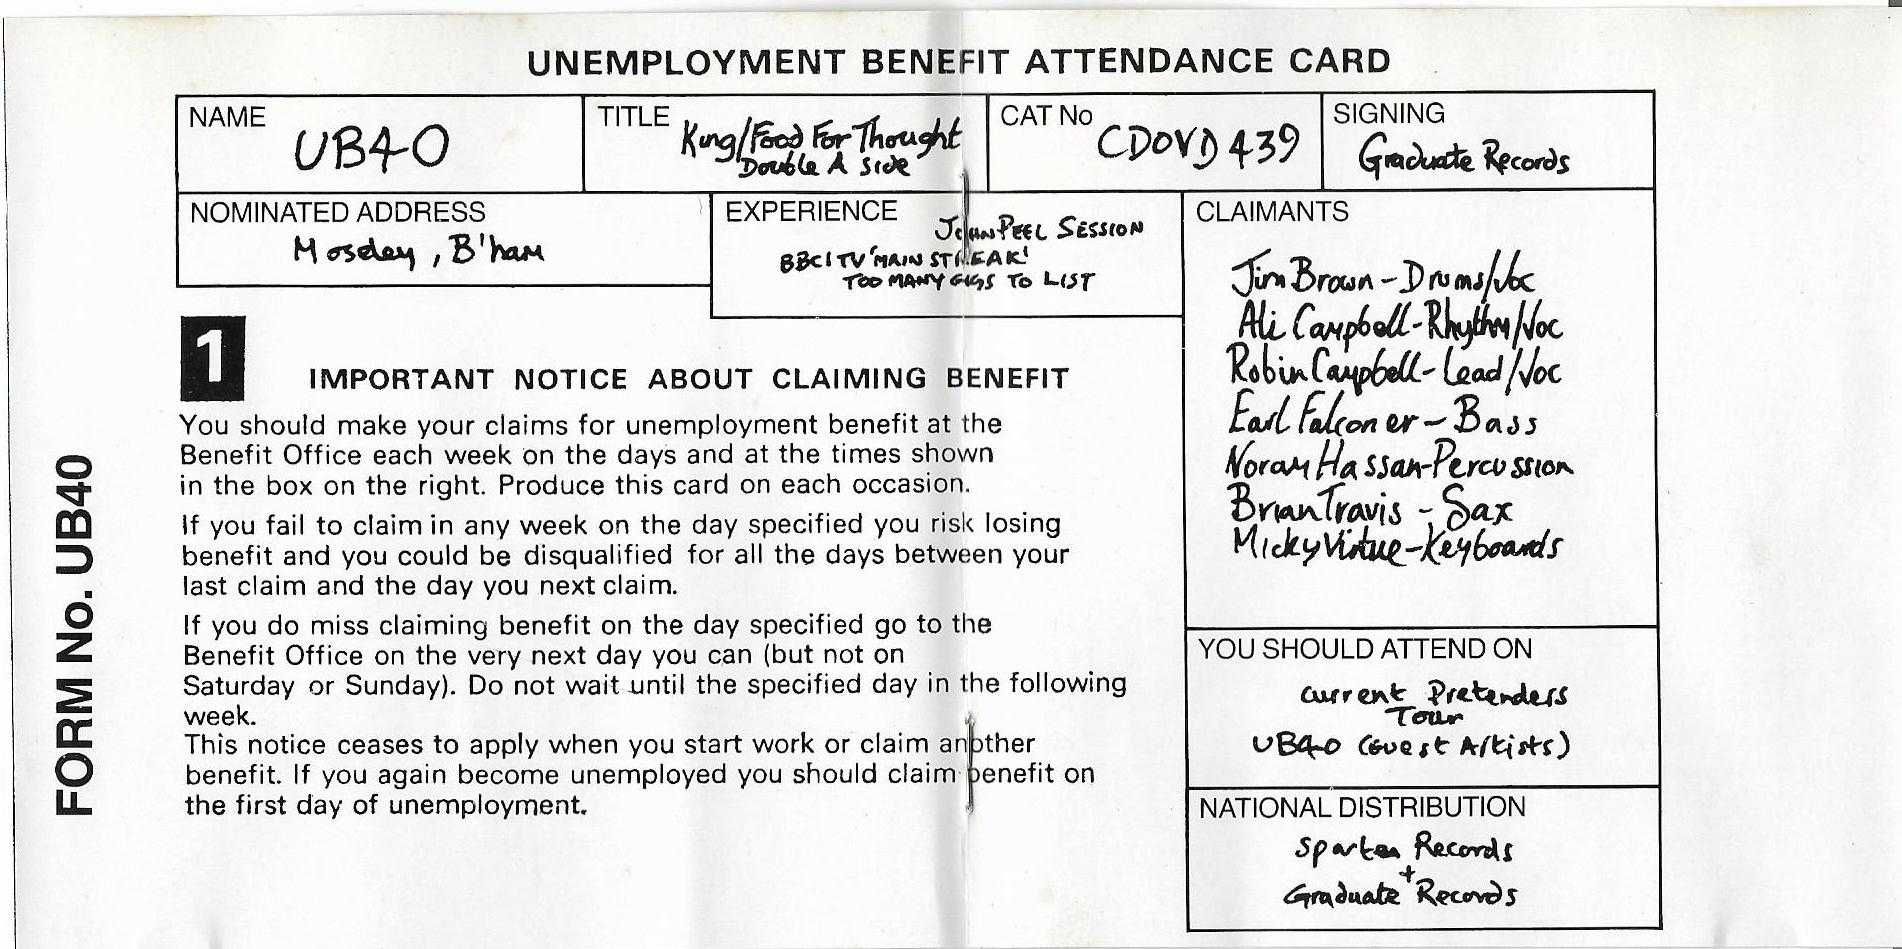 UNEMPLOYMENT BENEFIT ATTENDANCE CARD
NAME
UB40
TITLE
King/Food For Thought
Double A Side
CAT No
CDOVD 439
SIGNING
Graduate Records
NOMINATED ADDRESS
Moseley, B'ham
EXPERIENCE
JOHN PEEL SESSION
BBC1 TV 'MAIN STREAK'
TOO MANY GIGS TO LIST
CLAIMANTS
Jim Brown - Drums/Voc
Ali Campbell - Rhythm/Voc
Robin Campbell - Lead/Voc
Earl Falconer - Bass
Noram Hassan - Percussion
Brian Travis - Sax
Micky Virtue - Keyboards
YOU SHOULD ATTEND ON
Current Pretenders
Tour
UB40 (Guest Artists)
NATIONAL DISTRIBUTION
Spartan Records
+
Graduate Records
1
IMPORTANT NOTICE ABOUT CLAIMING BENEFIT
You should make your claims for unemployment benefit at the
Benefit Office each week on the days and at the times shown
in the box on the right. Produce this card on each occasion.
If you fail to claim in any week on the day specified you risk losing
benefit and you could be disqualified for all the days between your
last claim and the day you next claim.
If you do miss claiming benefit on the day specified go to the
Benefit Office on the very next day you can (but not on
Saturday or Sunday). Do not wait until the specified day in the following
week.
This notice ceases to apply when you start work or claim another
benefit. If you again become unemployed you should claim benefit on
the first day of unemployment.
FORM No. UB40